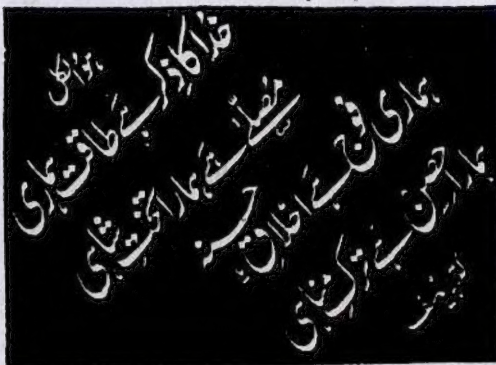 ہوالکل
خدا کا ذکر ہے طاقت ہماری
مصلےٰ ہے ہمارا تختِ شاہی
ہماری فوج ہے اخلاقِ حسنہ
ہمارا حصن ہے ترکِ مناہی